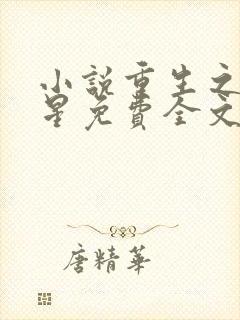 小說重生之
星免費全文
唐精華